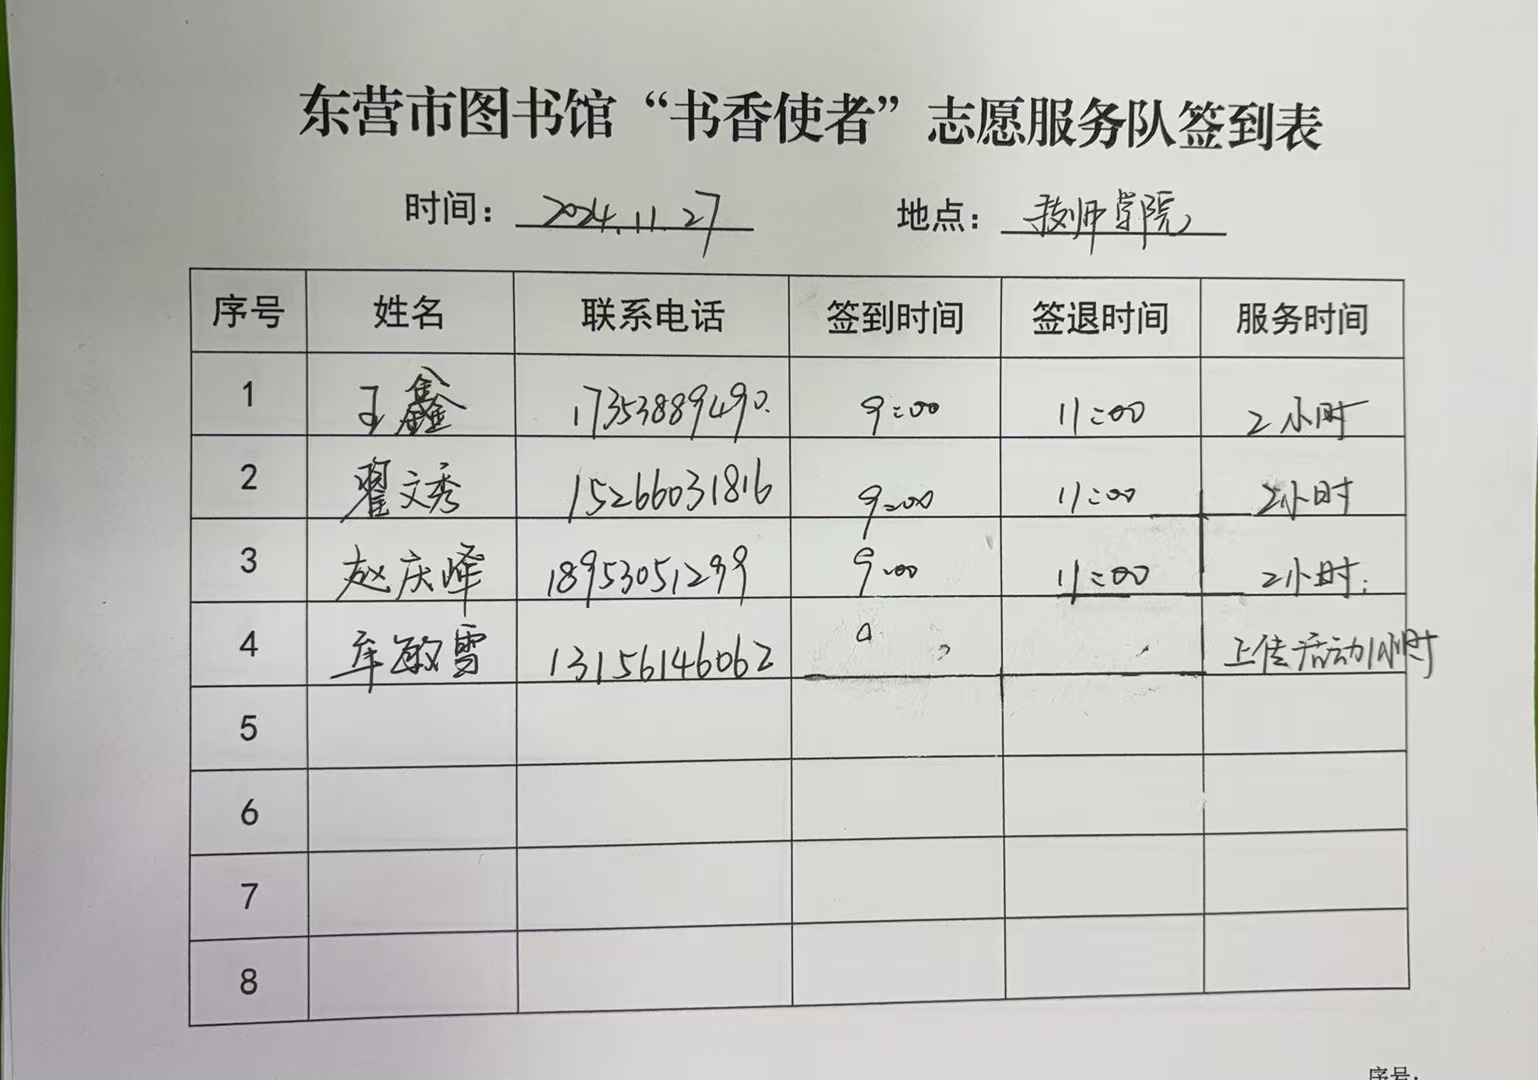 东营市图书馆“书香使者”志愿服务队签到表
时间：2024.11.27 地点：教师学院
序号 姓名 联系电话 签到时间 签退时间 服务时间
1 王鑫 17353889490. 9:00 11:00 2小时
2 翟文秀 15266031816 9:00 11:00 2小时
3 赵庆峰 18953051299 9:00 11:00 2小时.
4 车敏雪 13156146062 上传活动1小时
5
6
7
8
序号: